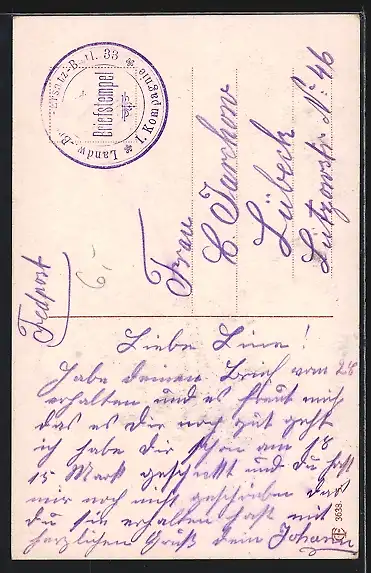 Landw.-Br. Ersatz-Batl. 33
* I. Kompagnie *
Briefstempel
Fedpost
6,-
Frau
C Jarchow
Lübeck
Lützowstr No 46
Liebe Line!
Habe deinen Brief vom 28
erhalten und es freut mich
das es Dir noch gut geht
ich habe Dir schon am 18
15 Mark geschickt und du hast
mir noch nicht geschrieben das
du sie erhalten hast mit
herzlichen Gruß dein Johann
3638